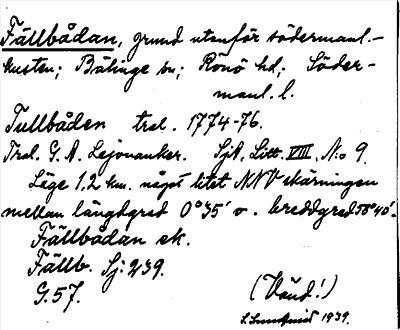 Fällbådan, grund utanför södermanl.-
kusten; Bälinge sn; Rönö hd; Söder-
manl. l.
Tullbåden trol. 1774-76.
Trol. G. A. Lejonanker. SjA, Litt. VIII, N:o 9.
Läge 1,2 km. något litet NNV skärningen
mellan längdgrad 0°35' v. breddgrad 58°40'.
Fällbådan ek.
Fällb. Sj: 239.
G. 57.
(Vänd!)
S. Sundquist 1939.